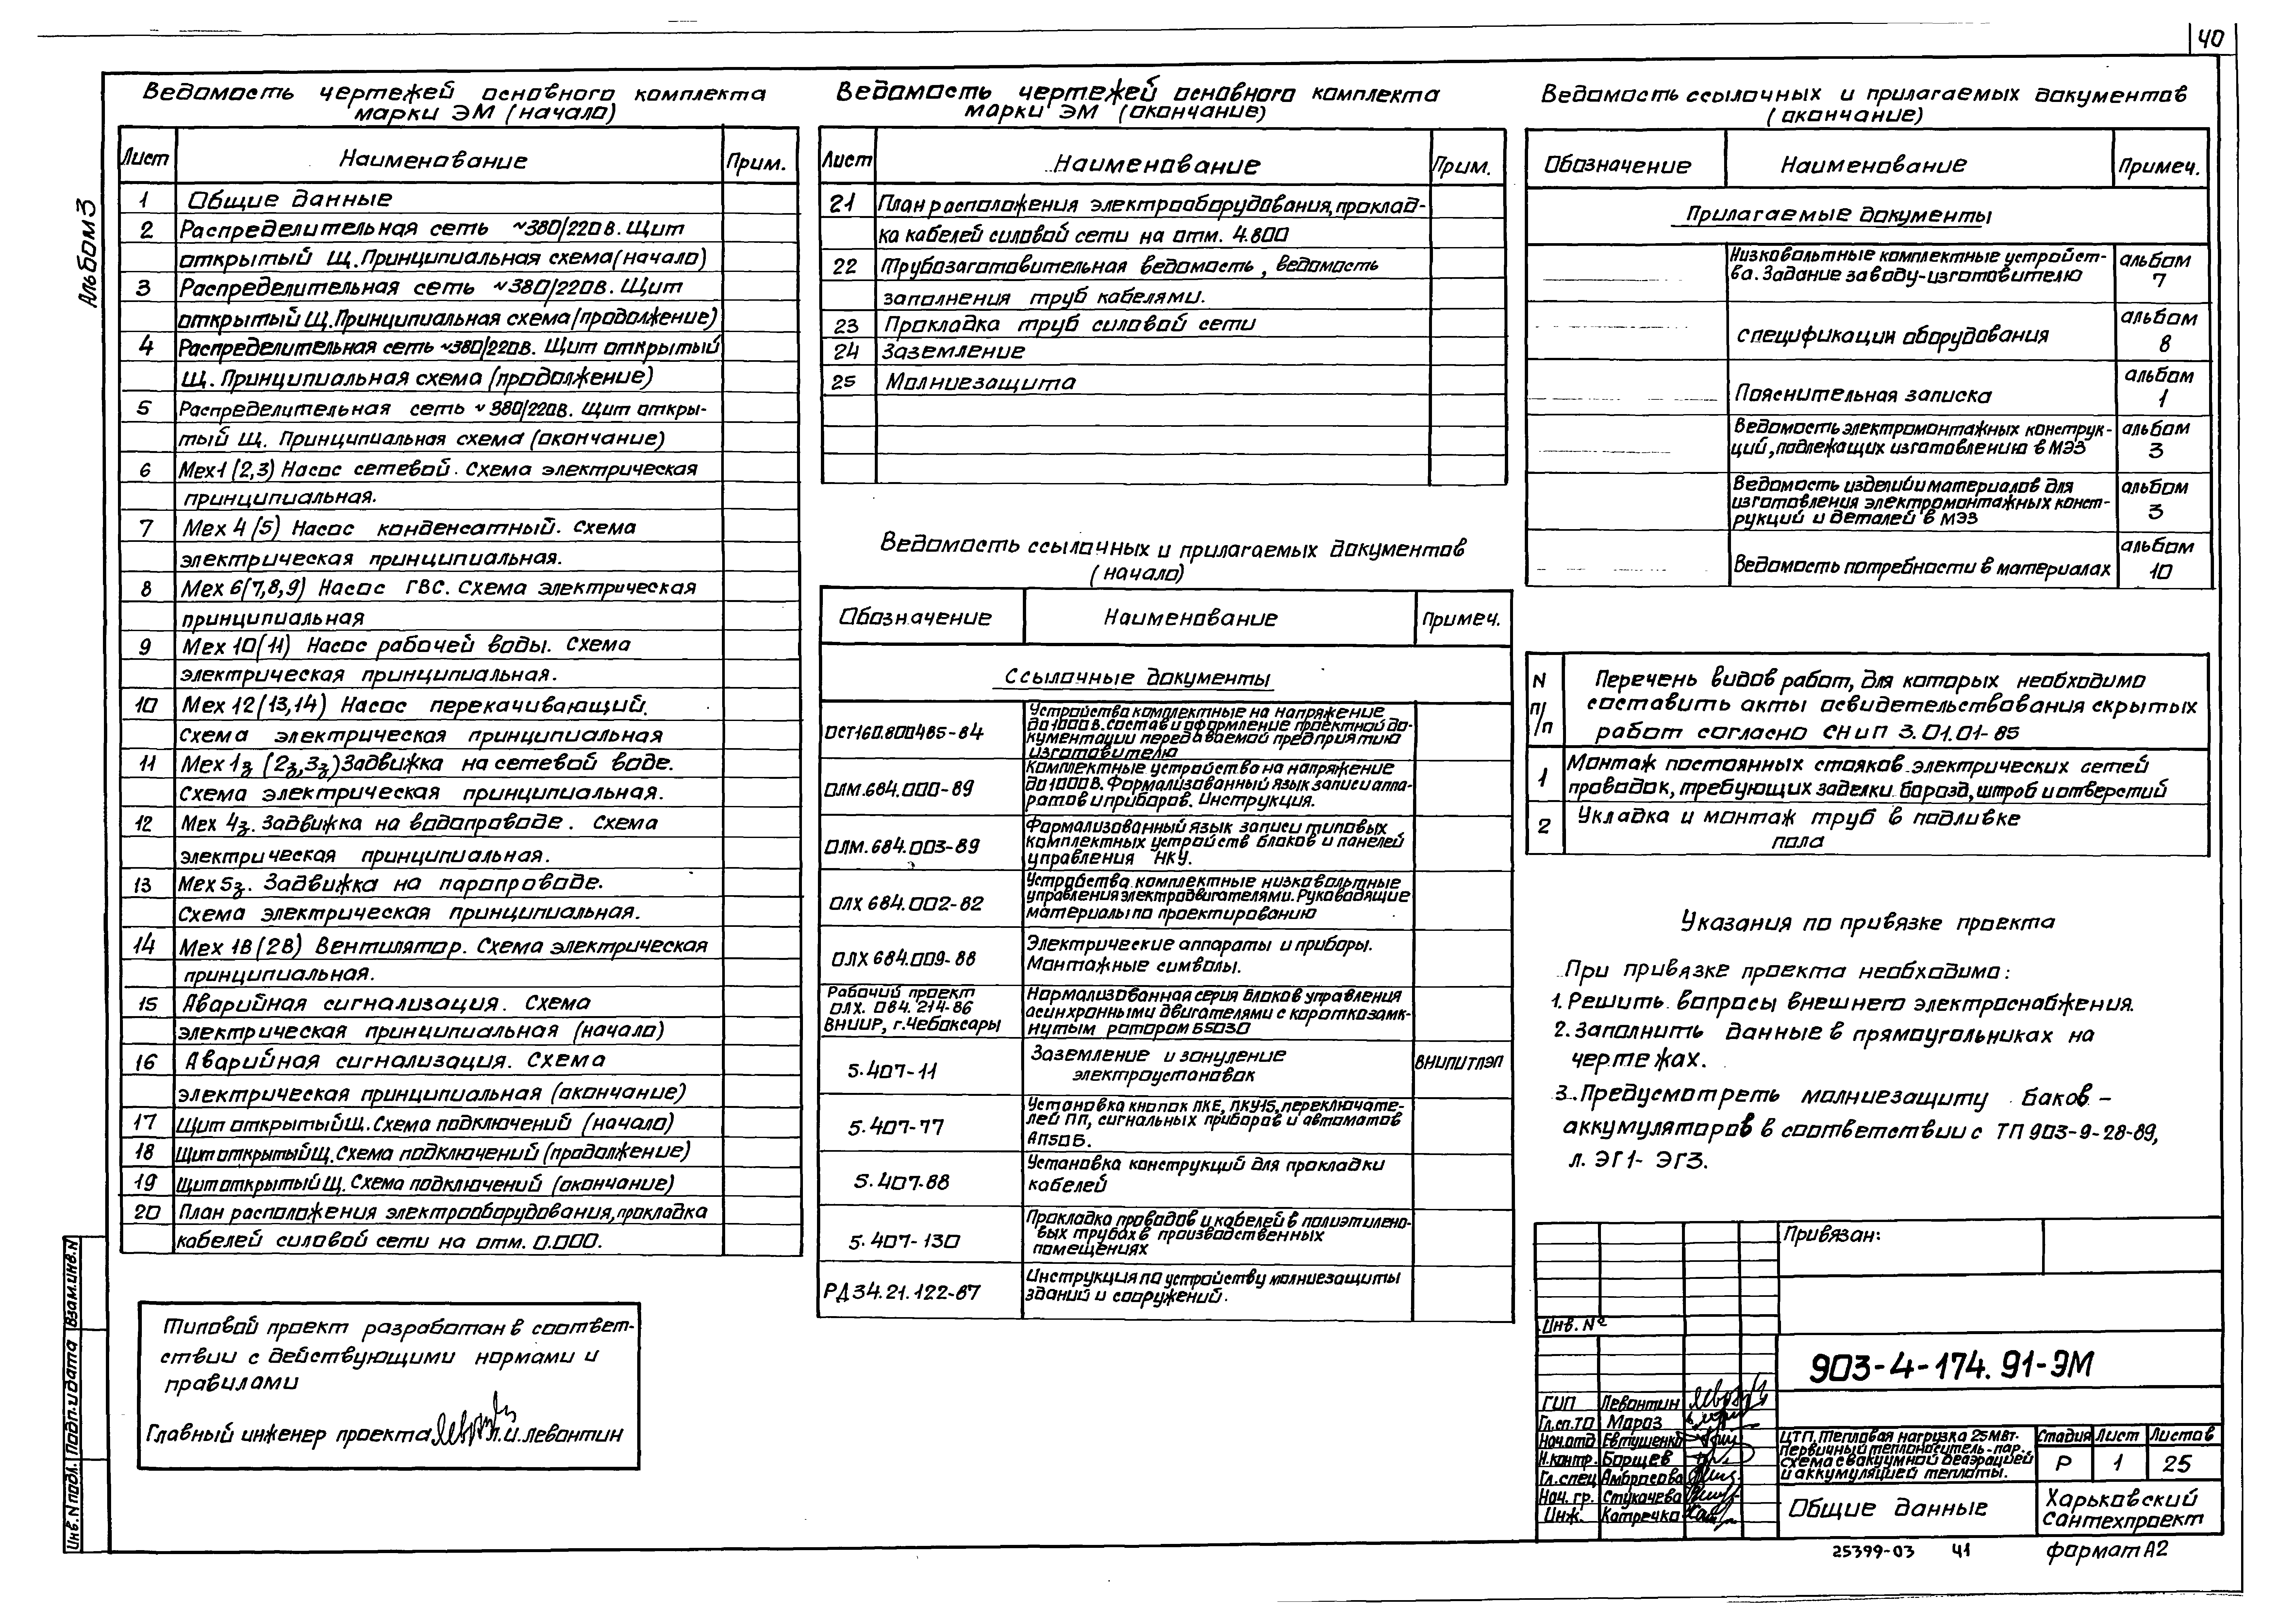 40
Альбом 3
Ведомость чертежей основного комплекта
марки ЭМ (начало)
Лист Наименование Прим.
1 Общие данные
2 Распределительная сеть ~380/220В. Щит
открытый Щ. Принципиальная схема (начало)
3 Распределительная сеть ~380/220В. Щит
открытый Щ. Принципиальная схема (продолжение)
4 Распределительная сеть ~380/220В. Щит открытый
Щ. Принципиальная схема (продолжение)
5 Распределительная сеть ~380/220В. Щит откры-
тый Щ. Принципиальная схема (окончание)
6 Мех1 (2,3) Насос сетевой. Схема электрическая
принципиальная.
7 Мех 4 (5) Насос конденсатный. Схема
электрическая принципиальная.
8 Мех 6(7,8,9) Насос ГВС. Схема электрическая
принципиальная
9 Мех 10(11) Насос рабочей воды. Схема
электрическая принципиальная.
10 Мех 12(13,14) Насос перекачивающий.
Схема электрическая принципиальная
11 Мех 1з (2з,3з) Задвижка на сетевой воде.
Схема электрическая принципиальная.
12 Мех 4з. Задвижка на водопроводе. Схема
электрическая принципиальная.
13 Мех 5з. Задвижка на паропроводе.
Схема электрическая принципиальная.
14 Мех 1В (2В) Вентилятор. Схема электрическая
принципиальная.
15 Аварийная сигнализация. Схема
электрическая принципиальная (начало)
16 Аварийная сигнализация. Схема
электрическая принципиальная (окончание)
17 Щит открытый Щ. Схема подключений (начало)
18 Щит открытый Щ. Схема подключений (продолжение)
19 Щит открытый Щ. Схема подключений (окончание)
20 План расположения электрооборудования, прокладка
кабелей силовой сети на отм. 0.000.
Типовой проект разработан в соответ-
ствии с действующими нормами и
правилами
Главный инженер проекта Л.И. Левонтин
Ведомость чертежей основного комплекта
марки ЭМ (окончание)
Лист Наименование Прим.
21 План расположения электрооборудования, проклад-
ка кабелей силовой сети на отм. 4.800
22 Трубозаготовительная ведомость, ведомость
заполнения труб кабелями.
23 Прокладка труб силовой сети
24 Заземление
25 Молниезащита
Ведомость ссылочных и прилагаемых документов
(начало)
Обозначение Наименование Примеч.
Ссылочные документы
ОСТ160.800485-84 Устройства комплектные на напряжение
до 1000В. Состав и оформление проектной до-
кументации передаваемой предприятию
изготовителю
ОЛМ.684.000-89 Комплектные устройства на напряжение
до 1000В. Формализованный язык записи аппа-
ратов и приборов. Инструкция.
ОЛМ.684.003-89 Формализованный язык записи типовых
комплектных устройств блоков и панелей
управления НКУ.
ОЛХ 684.002-82 Устройства комплектные низковольтные
управления электродвигателями. Руководящие
материалы по проектированию
ОЛХ 684.009-88 Электрические аппараты и приборы.
Монтажные символы.
Рабочий проект
ОЛХ. 084.214-86
ВНИИР, г.Чебоксары Нормализованная серия блоков управления
асинхронными двигателями с короткозамк-
нутым ротором Б5030
5.407-11 Заземление и зануление
электроустановок ВНИПИТПЭП
5.407-77 Установка кнопок ПКЕ, ПКУ15, переключате-
лей ПП, сигнальных приборов и автоматов
АП50Б.
5.407-88 Установка конструкций для прокладки
кабелей
5.407-130 Прокладка проводов и кабелей в полиэтилено-
вых трубах в производственных
помещениях
РД34.21.122-87 Инструкция по устройству молниезащиты
зданий и сооружений.
Ведомость ссылочных и прилагаемых документов
(окончание)
Обозначение Наименование Примеч.
Прилагаемые документы
Низковольтные комплектные устройст-
ва. Задание заводу-изготовителю альбом 7
Спецификации оборудования альбом 8
Пояснительная записка альбом 1
Ведомость электромонтажных конструк-
ций, подлежащих изготовлению в МЭЗ альбом 3
Ведомость изделий и материалов для
изготовления электромонтажных конст-
рукций и деталей в МЭЗ альбом 3
Ведомость потребности в материалах альбом 10
N п/п Перечень видов работ, для которых необходимо
составить акты освидетельствования скрытых
работ согласно СНиП 3.01.01-85
1 Монтаж постоянных стояков электрических сетей
проводок, требующих заделки борозд, штроб и отверстий
2 Укладка и монтаж труб в подливке
пола
Указания по привязке проекта
При привязке проекта необходимо:
1. Решить вопросы внешнего электроснабжения.
2. Заполнить данные в прямоугольниках на
чертежах.
3. Предусмотреть молниезащиту баков-
аккумуляторов в соответствии с ТП 903-9-28-89,
л. ЭГ1- ЭГ3.
Привязан:
Инв. №
903-4-174.91-ЭМ
ГИП Левонтин
Гл.сп.ТО Мороз
Нач.отд Евтушенко
Н.контр. Борщев
Гл.спец Амбросова
Нач. гр. Стукачева
Инж. Катречко
ЦТП. Тепловая нагрузка 25МВт.
Первичный теплоноситель-пар.
схема с вакуумной деаэрацией
и аккумуляцией теплоты.
Стадия Лист Листов
Р 1 25
Общие данные
Харьковский
Сантехпроект
25399-03 41 формат А2
Инв. N подл. Подп. и дата Взам.инв.N